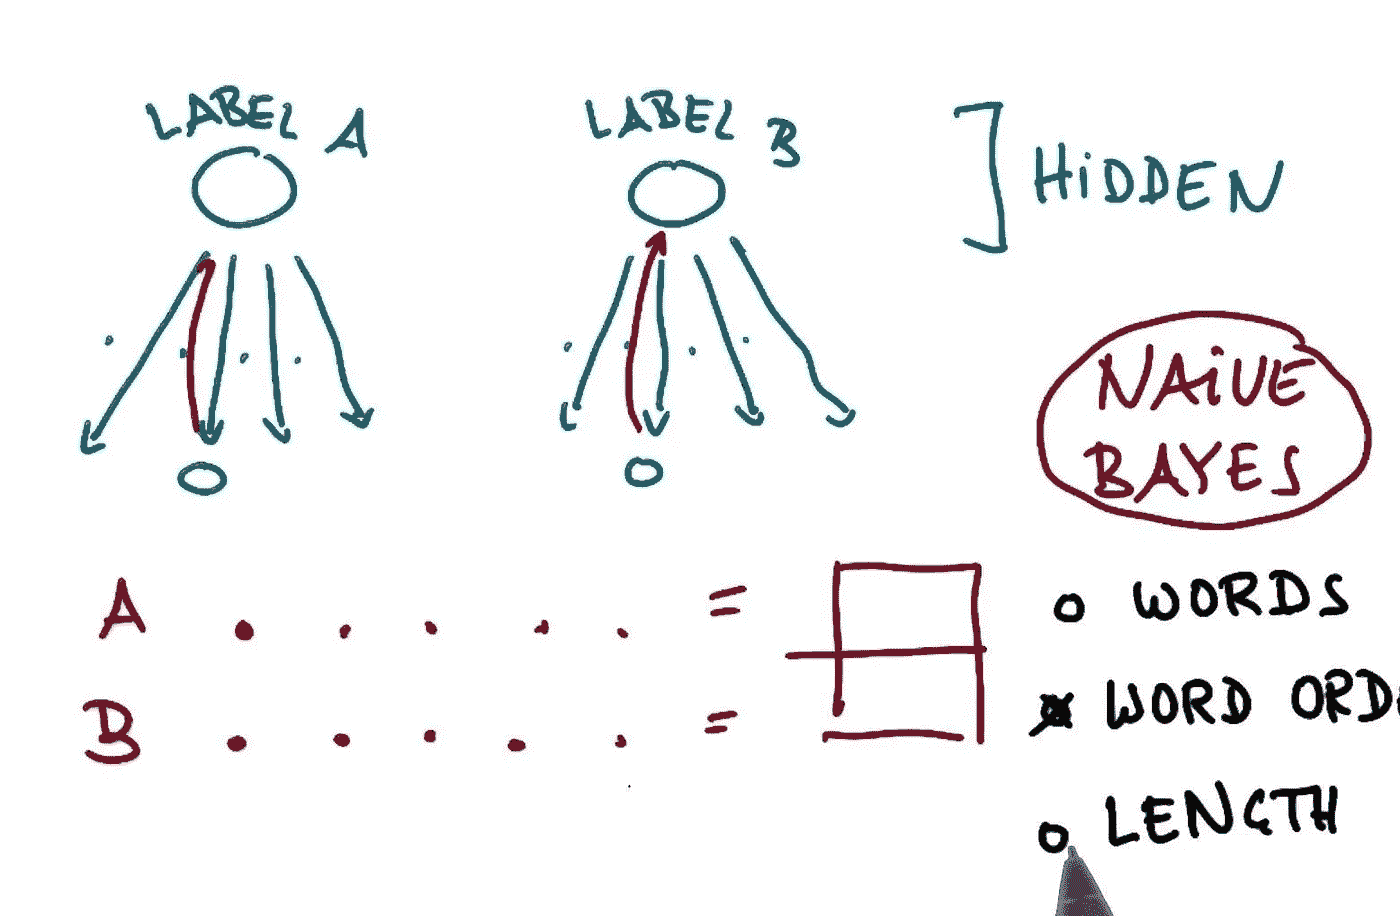 LABEL A
LABEL B
HiDDEN
NAiVE
BAYES
A . . . . . =
B . . . . . =
WORDS
WORD ORDE
LENGTH